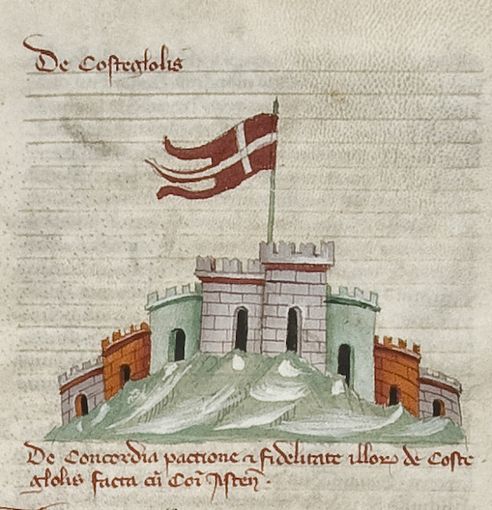 De Costeglolis
De Concordia pactione ⁊ fidelitate illoꝝ de Coste
glolis facta cū Coī Asteñ.